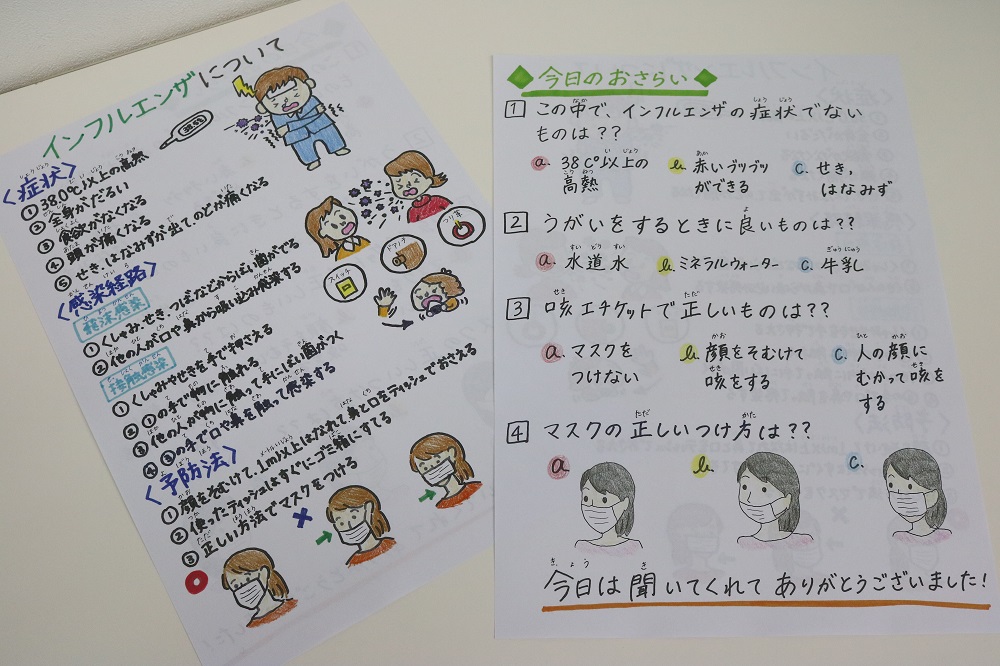 インフルエンザについて
<症状>
①38.0℃以上の高熱
②全身がだるい
③食欲がなくなる
④頭が痛くなる
⑤せき、はなみずが出て、のどが痛くなる
<感染経路>
飛沫感染
①くしゃみ・せき・つばなどからばい菌がでる
②他の人が口や鼻から吸い込み感染する
接触感染
①くしゃみやせきを手で押さえる
②①の手で物に触れる
③他の人が物に触って手にばい菌がつく
④③の手で口や鼻を触って感染する
<予防法>
①顔をそむけて、1m以上はなれて鼻と口をティッシュでおさえる
②使ったティッシュはすぐにゴミ箱にすてる
③正しい方法でマスクをつける
スイッチ
ドアノブ
つり革
今日のおさらい
1 この中で、インフルエンザの症状でない
ものは??
a. 38C°以上の
高熱
b. 赤いブツブツ
ができる
c. せき,
はなみず
2 うがいをするときに良いものは??
a. 水道水
b. ミネラルウォーター
c. 牛乳
3 咳エチケットで正しいものは??
a. マスクを
つけない
b. 顔をそむけて
咳をする
c. 人の顔に
むかって咳を
する
4 マスクの正しいつけ方は??
a.
b.
c.
今日は聞いてくれてありがとうございました!